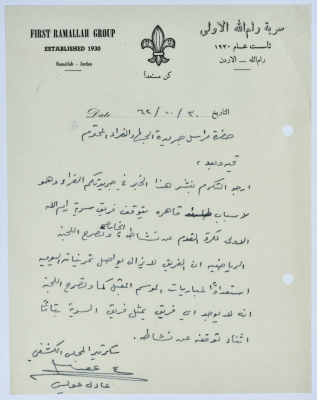 FIRST RAMALLAH GROUP
ESTABLISHED 1930
Ramallah - Jordan
سرية رام الله الاولى
تأسست عام ١٩٣٠
رام الله - الاردن
كن مستعداً
Date ٣٠/١٠/٦٢ التاريخ
حضرة مراسل جريدة الجهاد الغراء المحترم
تحية وبعد ،
ارجو التكرم بنشر هذا الخبر في جريدتكم الغراء وهو
لاسباب قاهره يتوقف فريق سرية رام الله
الاولى لكرة القدم عن نشاطه الخارجي وتصرح اللجنة
الرياضيه ان الفريق لا يزال يواصل تمريناته اليوميه
استعدادًا لمباريات الموسم المقبل كما وتصرح اللجنة
انه لا يوجد اي فريق يمثل فريق السرية بتاتًا
اثناء توقفه عن نشاطه.
سكرتير المجلس الكشفي
عادل عويس